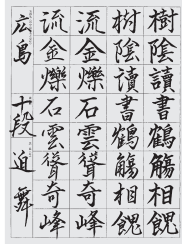 樹陰讀書鶴觴相餽
樹陰讀書鶴觴相餽
流金爍石雲聳奇峰
流金爍石雲聳奇峰
広島 十段 迫 舞